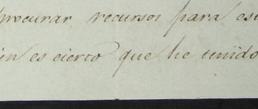 procurar recursos para es
en es cierto que he tenido